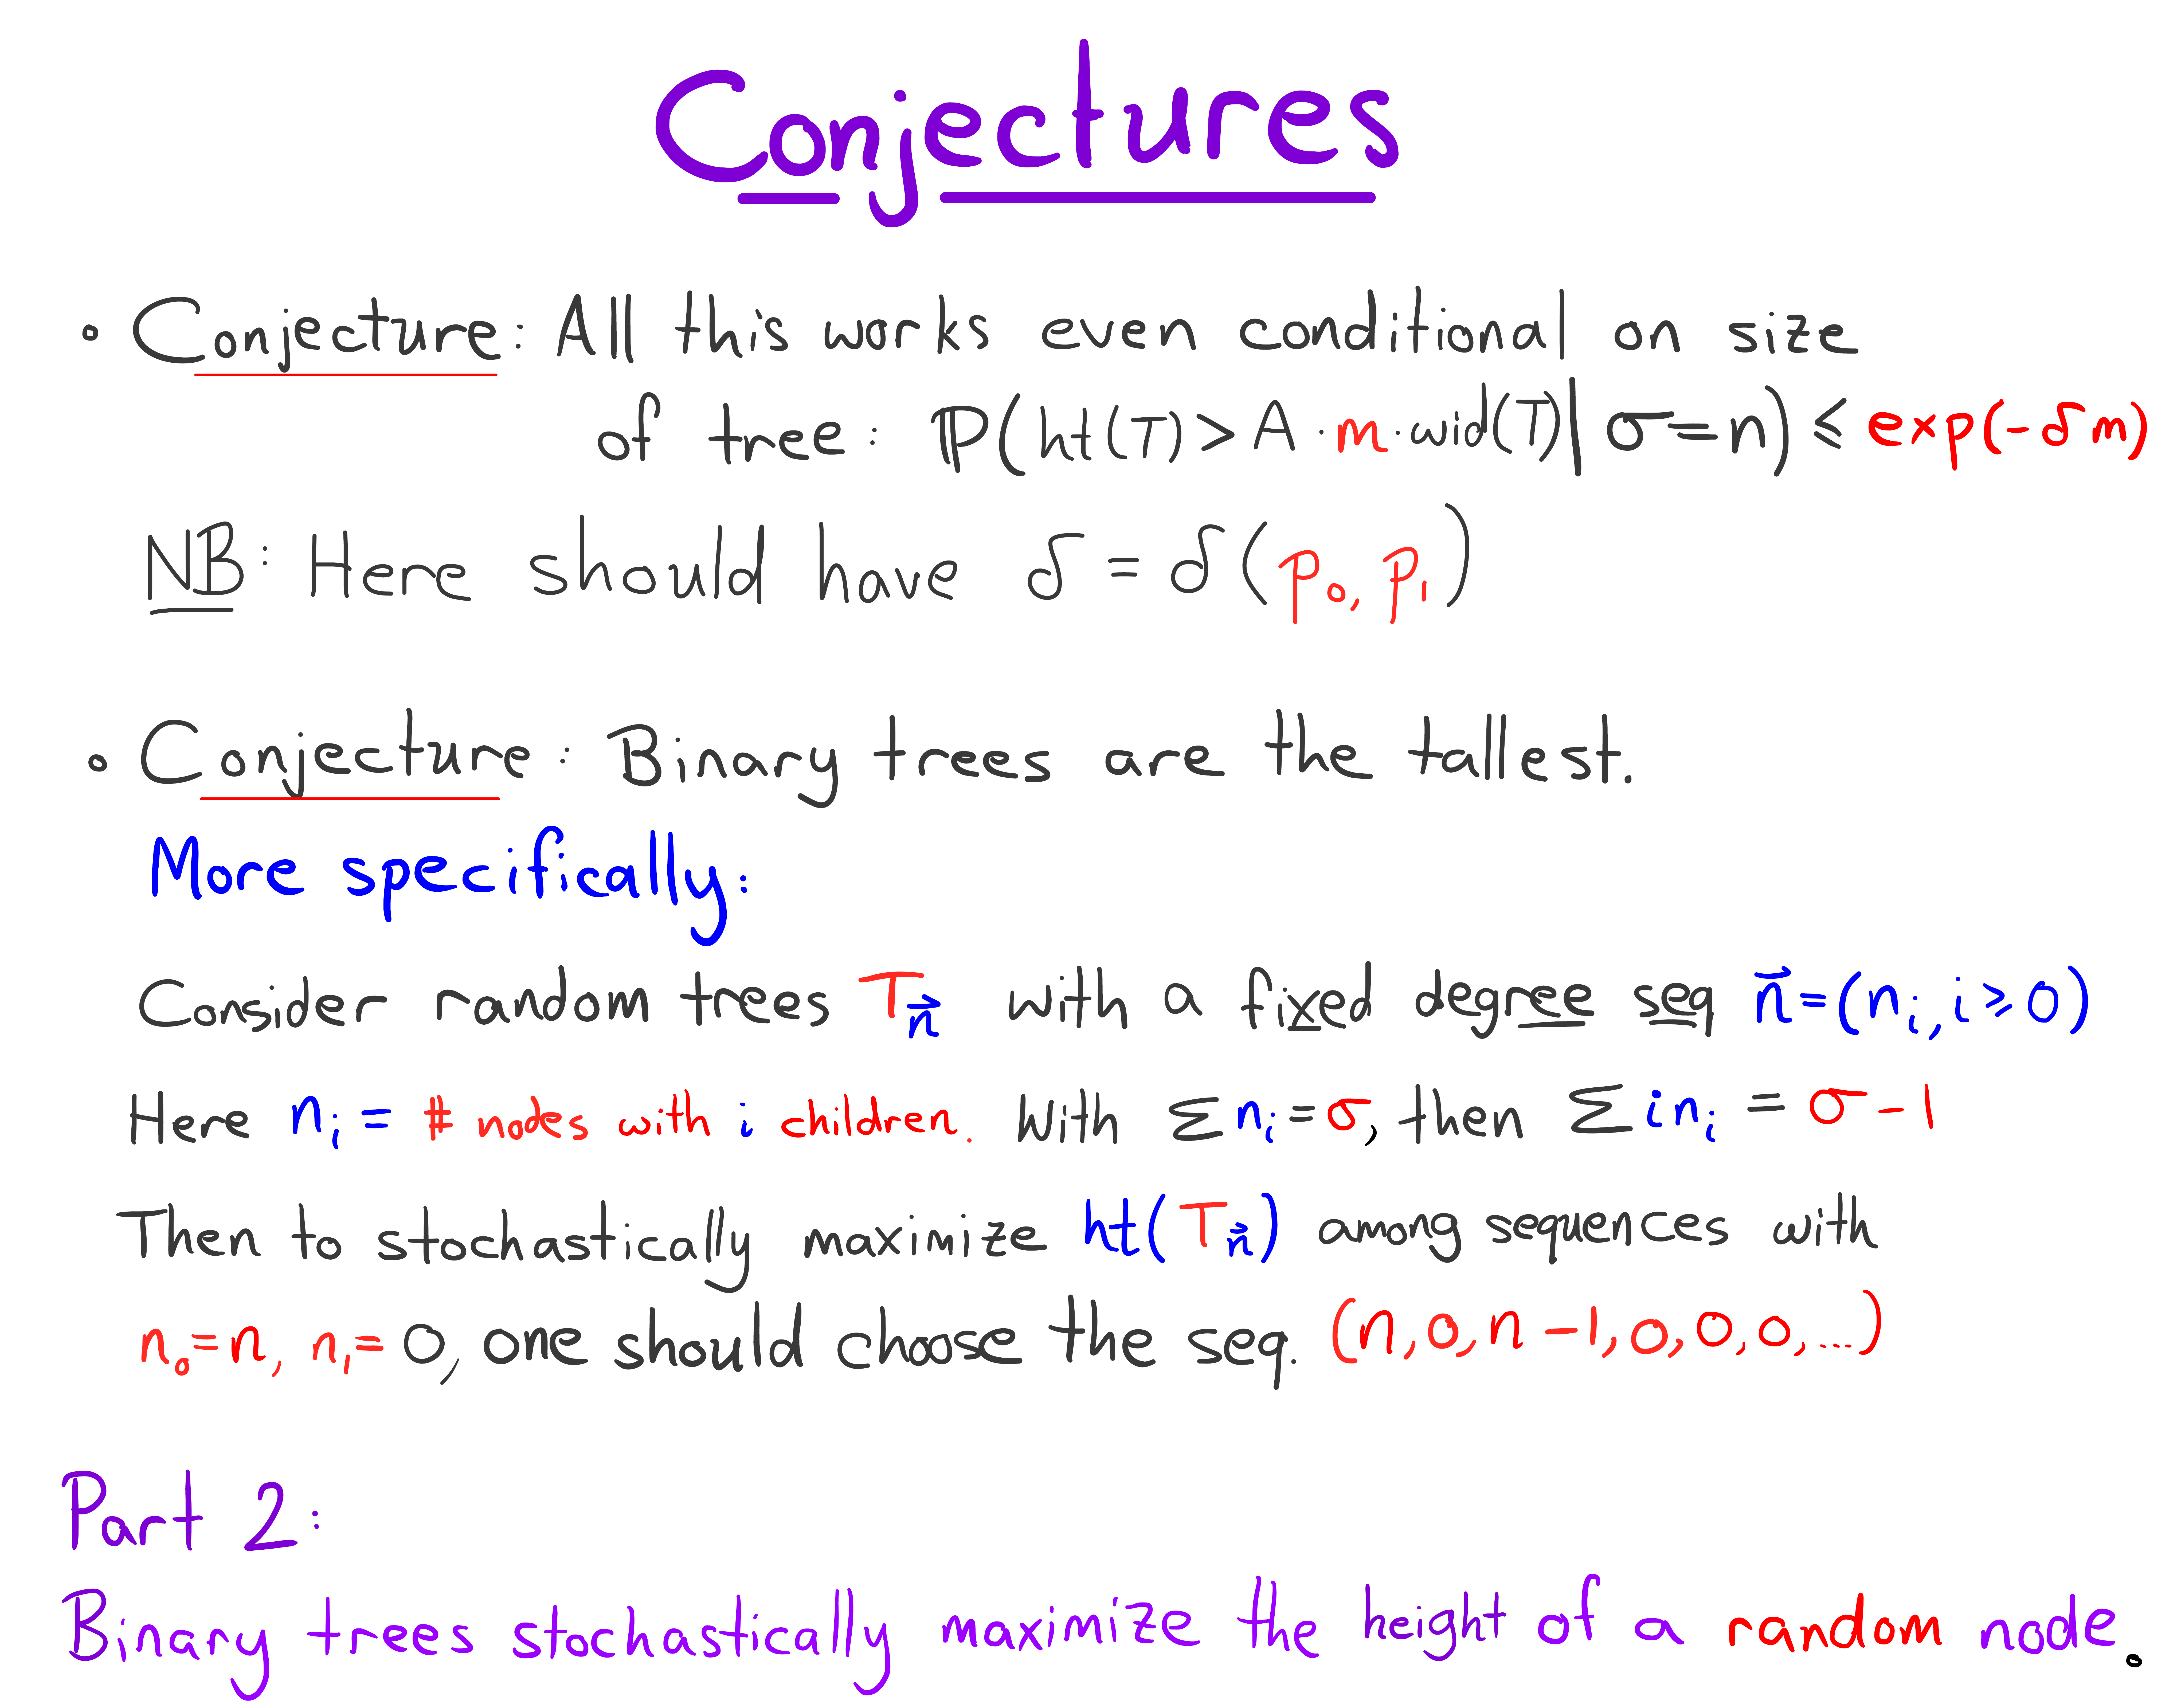 Conjectures
∘ Conjecture: All this works even conditional on size
of tree: ℙ(ht(T) > A · m · wid(T) | σ = n) ≤ exp(-δm)
NB: Here should have δ = δ(p₀, p₁)
∘ Conjecture: Binary trees are the tallest.
More specifically:
Consider random trees T_n⃗ with a fixed degree seq n⃗ = (n_i, i ≥ 0)
Here n_i = # nodes with i children. With Σ n_i = σ, then Σ i n_i = σ - 1
Then to stochastically maximize ht(T_n⃗) among sequences with
n₀ = n, n₁ = 0, one should choose the seq. (n, 0, n-1, 0, 0, 0, ...)
Part 2:
Binary trees stochastically maximize the height of a random node.